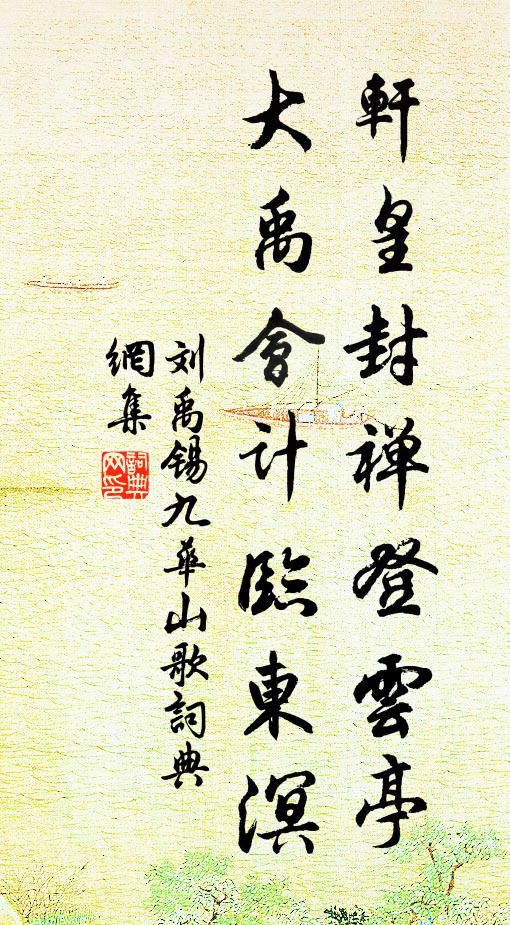 軒皇封禅登雲亭
大禹會计臨東溟
刘禹锡九華山歌詞典
網集
詞典
网印